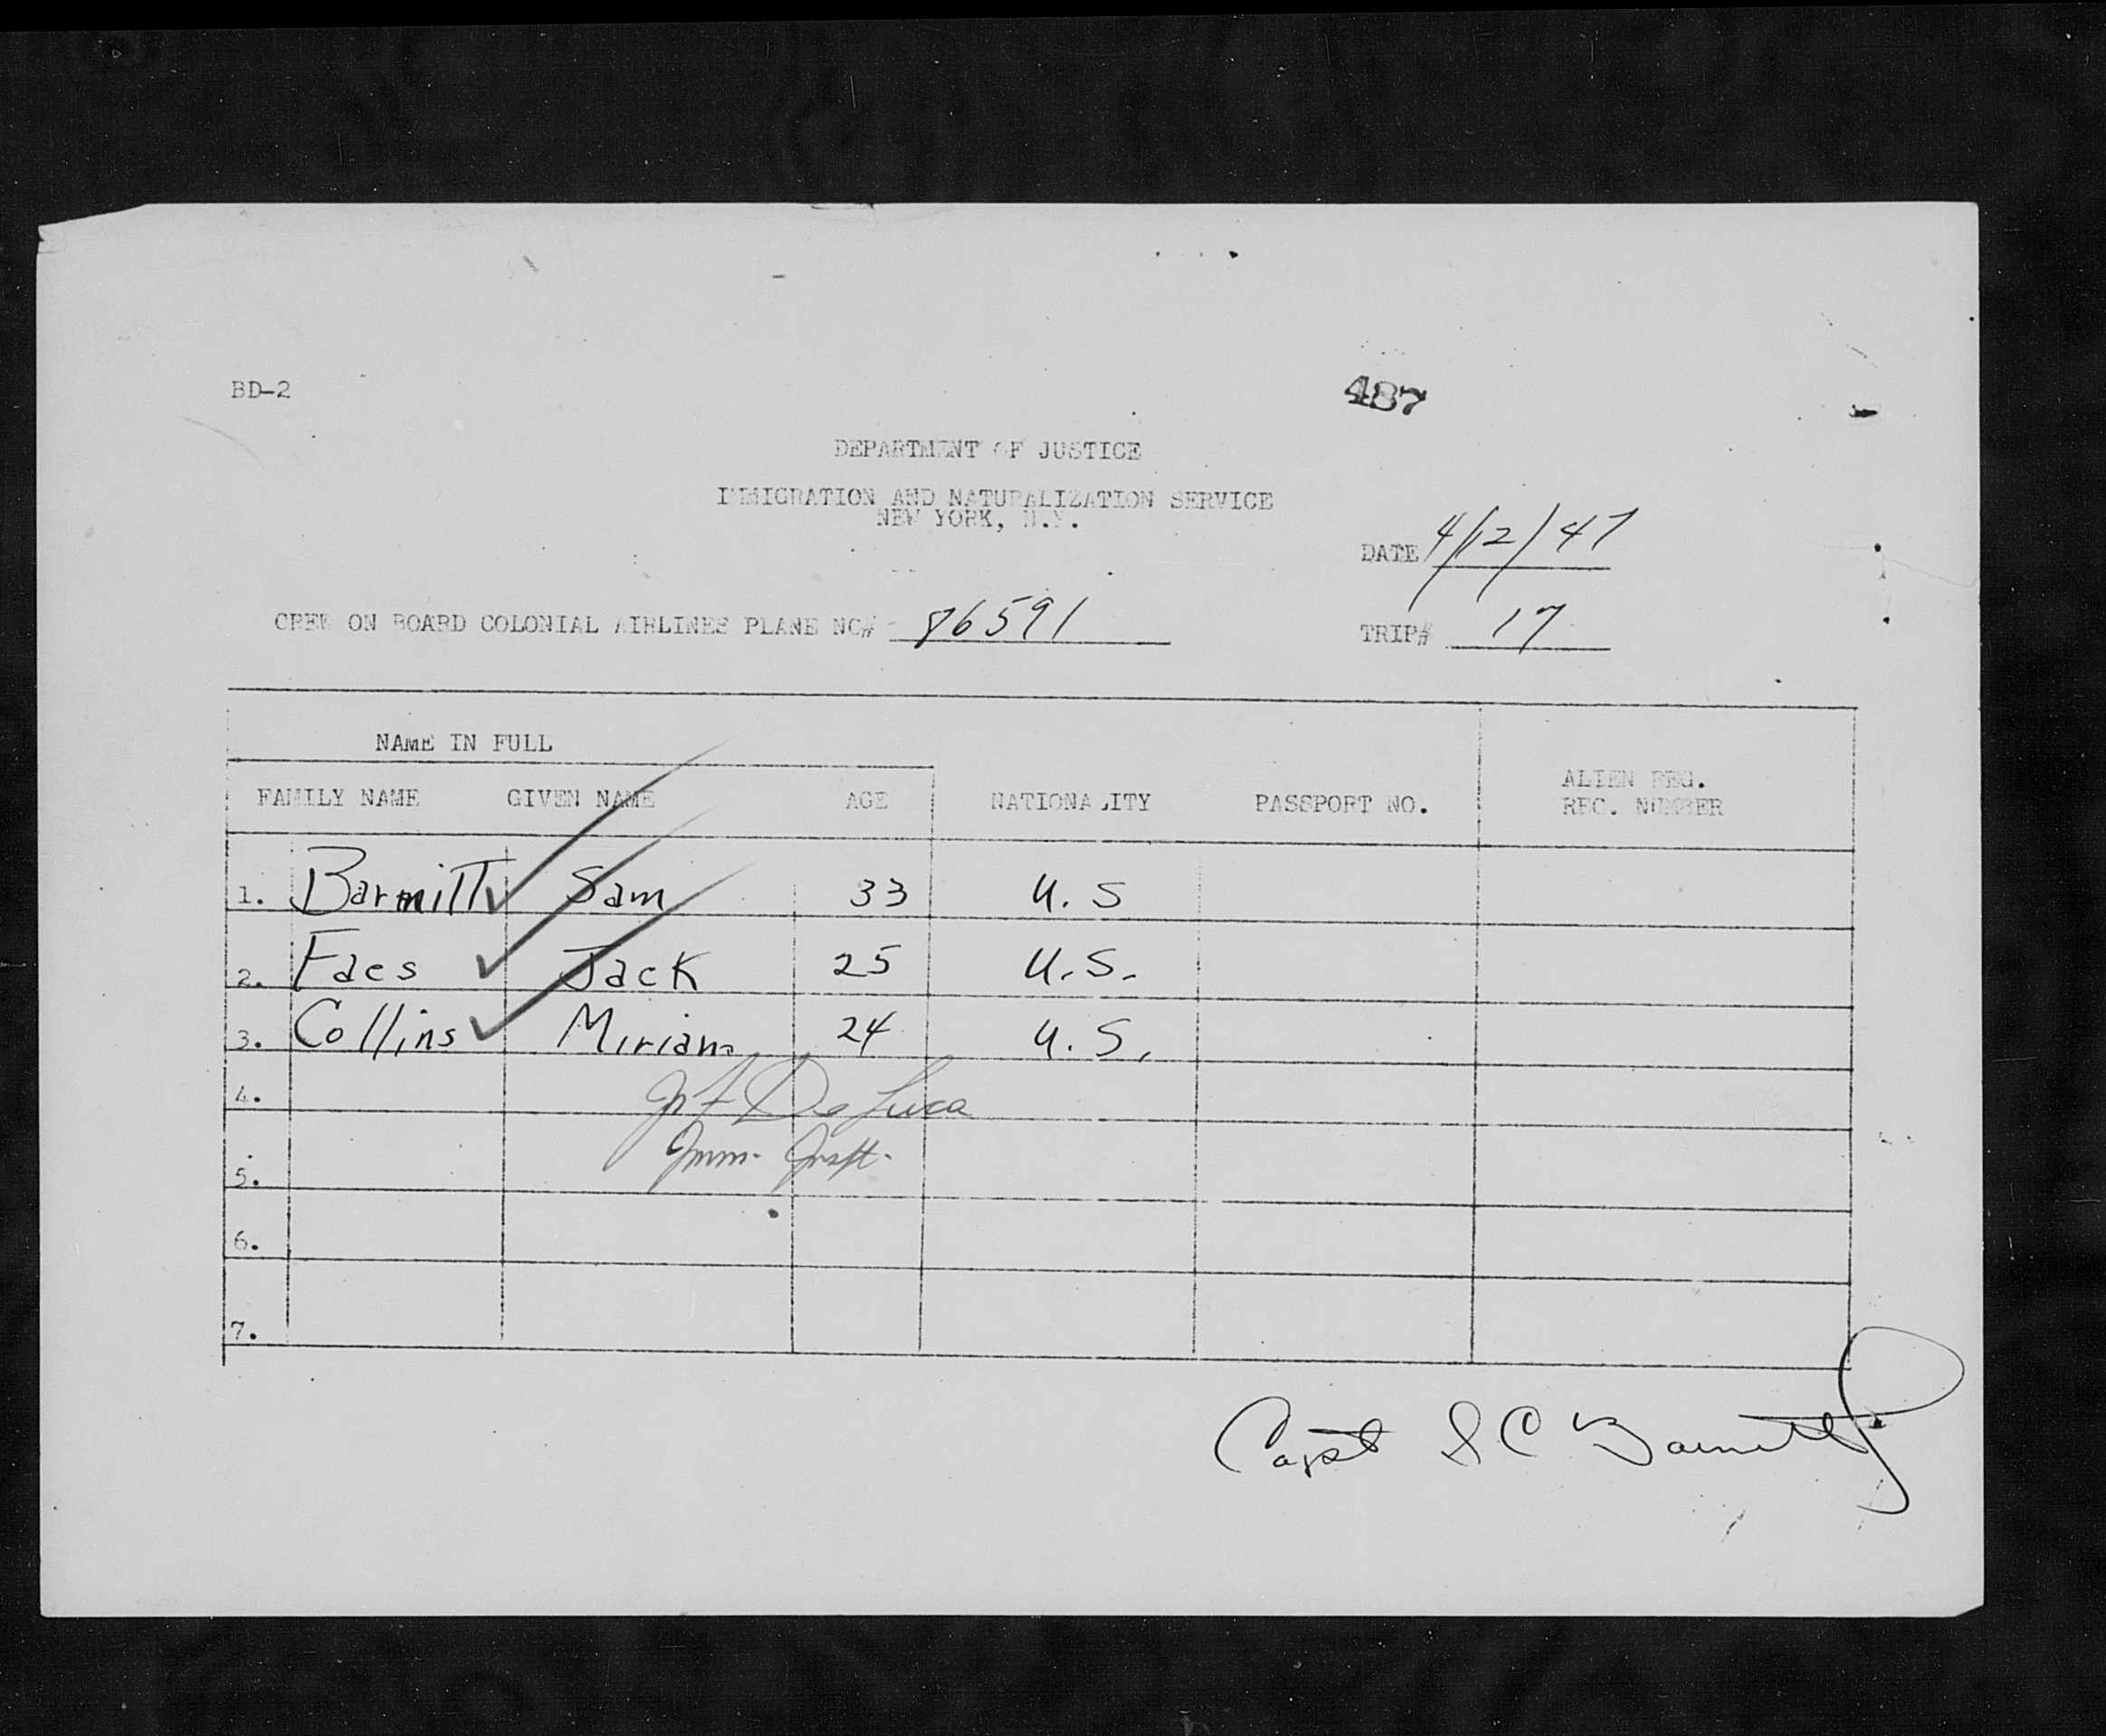 BD-2
487
DEPARTMENT OF JUSTICE
IMMIGRATION AND NATURALIZATION SERVICE
NEW YORK, N.Y.
DATE 4/12/47
CREW ON BOARD COLONIAL AIRLINES PLANE NO# 86591
TRIP# 17
NAME IN FULL
FAMILY NAME GIVEN NAME AGE NATIONALITY PASSPORT NO. ALIEN REG. REC. NUMBER
1. Barmitt Sam 33 U.S
2. Faes Jack 25 U.S.
3. Collins Miriam 24 U.S.
4. De Luca
Imm. Inspt.
5.
6.
7.
Capt S C Barnett